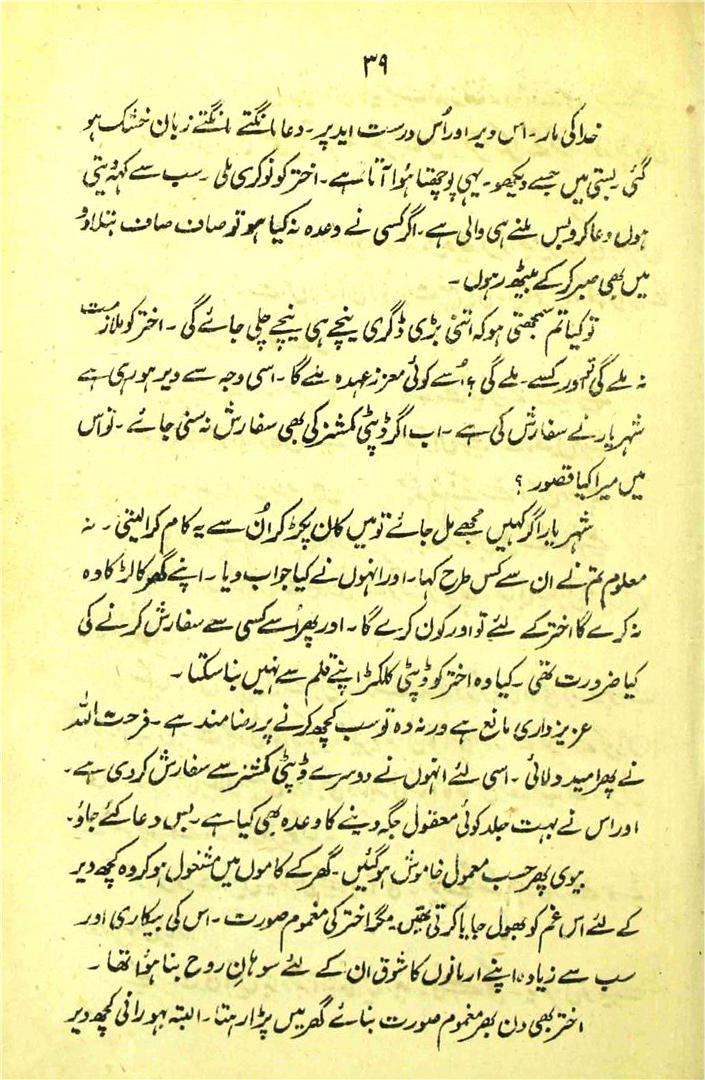 ۳۹
خدا کی مار۔ اس ویر اور اُس درست اید پر۔ دعا مانگتے مانگتے زبان خشک ہو
گئی۔ بستی میں جسے دیکھو۔ یہی پوچھتا ہوا آتا ہے۔ اختر کو نوکری ملی۔ سب سے کہہ دیتی
ہوں دعا کرو بس ملنے ہی والی ہے۔ اگر کسی نے وعدہ نہ کیا ہو تو صاف صاف بتلاؤ
میں بھی صبر کر کے بیٹھ رہوں۔
تو کیا تم سمجھتی ہو کہ اتنی بڑی ڈگری نیچے ہی نیچے چلی جائے گی۔ اختر کو ملازمت
نہ ملے گی تو اور کسے ملے گی؟ اُسے کوئی معزز عہدہ ملے گا۔ اسی وجہ سے دیر ہو رہی ہے
شہریار نے سفارش کی ہے۔ اب اگر ڈپٹی کمشنر کی بھی سفارش نہ سنی جائے۔ تو اس
میں میرا کیا قصور؟
شہریار اگر کہیں مجھے مل جائے تو میں کان پکڑ کر اُن سے یہ کام کرا لیتی۔ نہ
معلوم تم نے ان سے کس طرح کہا۔ اور انہوں نے کیا جواب دیا۔ اپنے گھر کا لڑکا وہ
نہ کرے گا اختر کے لئے تو اور کون کرے گا۔ اور پھر اُسے کسی سے سفارش کرنے کی
کیا ضرورت تھی۔ کیا وہ اختر کو ڈپٹی کلکٹر اپنے قلم سے نہیں بنا سکتا۔
عزیز داری مانع ہے ورنہ وہ تو سب کچھ کرنے پر رضا مند ہے۔ فرحت اللہ
نے پھر امید دلائی۔ اسی لئے انہوں نے دوسرے ڈپٹی کمشنر سے سفارش کر دی ہے۔
اور اس نے بہت جلد کوئی معقول جگہ دینے کا وعدہ بھی کیا ہے۔ بس دعا کئے جاؤ۔
بیوی پھر حسب معمول خاموش ہو گئیں۔ گھر کے کاموں میں مشغول ہو کر وہ کچھ دیر
کے لئے اس غم کو بھول جایا کرتی تھیں۔ مگر اختر کی مغموم صورت۔ اس کی بیکاری اور
سب سے زیادہ اپنے ارمانوں کا شوق ان کے لئے سوہانِ روح بنا ہوا تھا۔
اختر بھی دن بھر مغموم صورت بنائے گھر میں پڑا رہتا۔ البتہ بہو رانی کچھ دیر